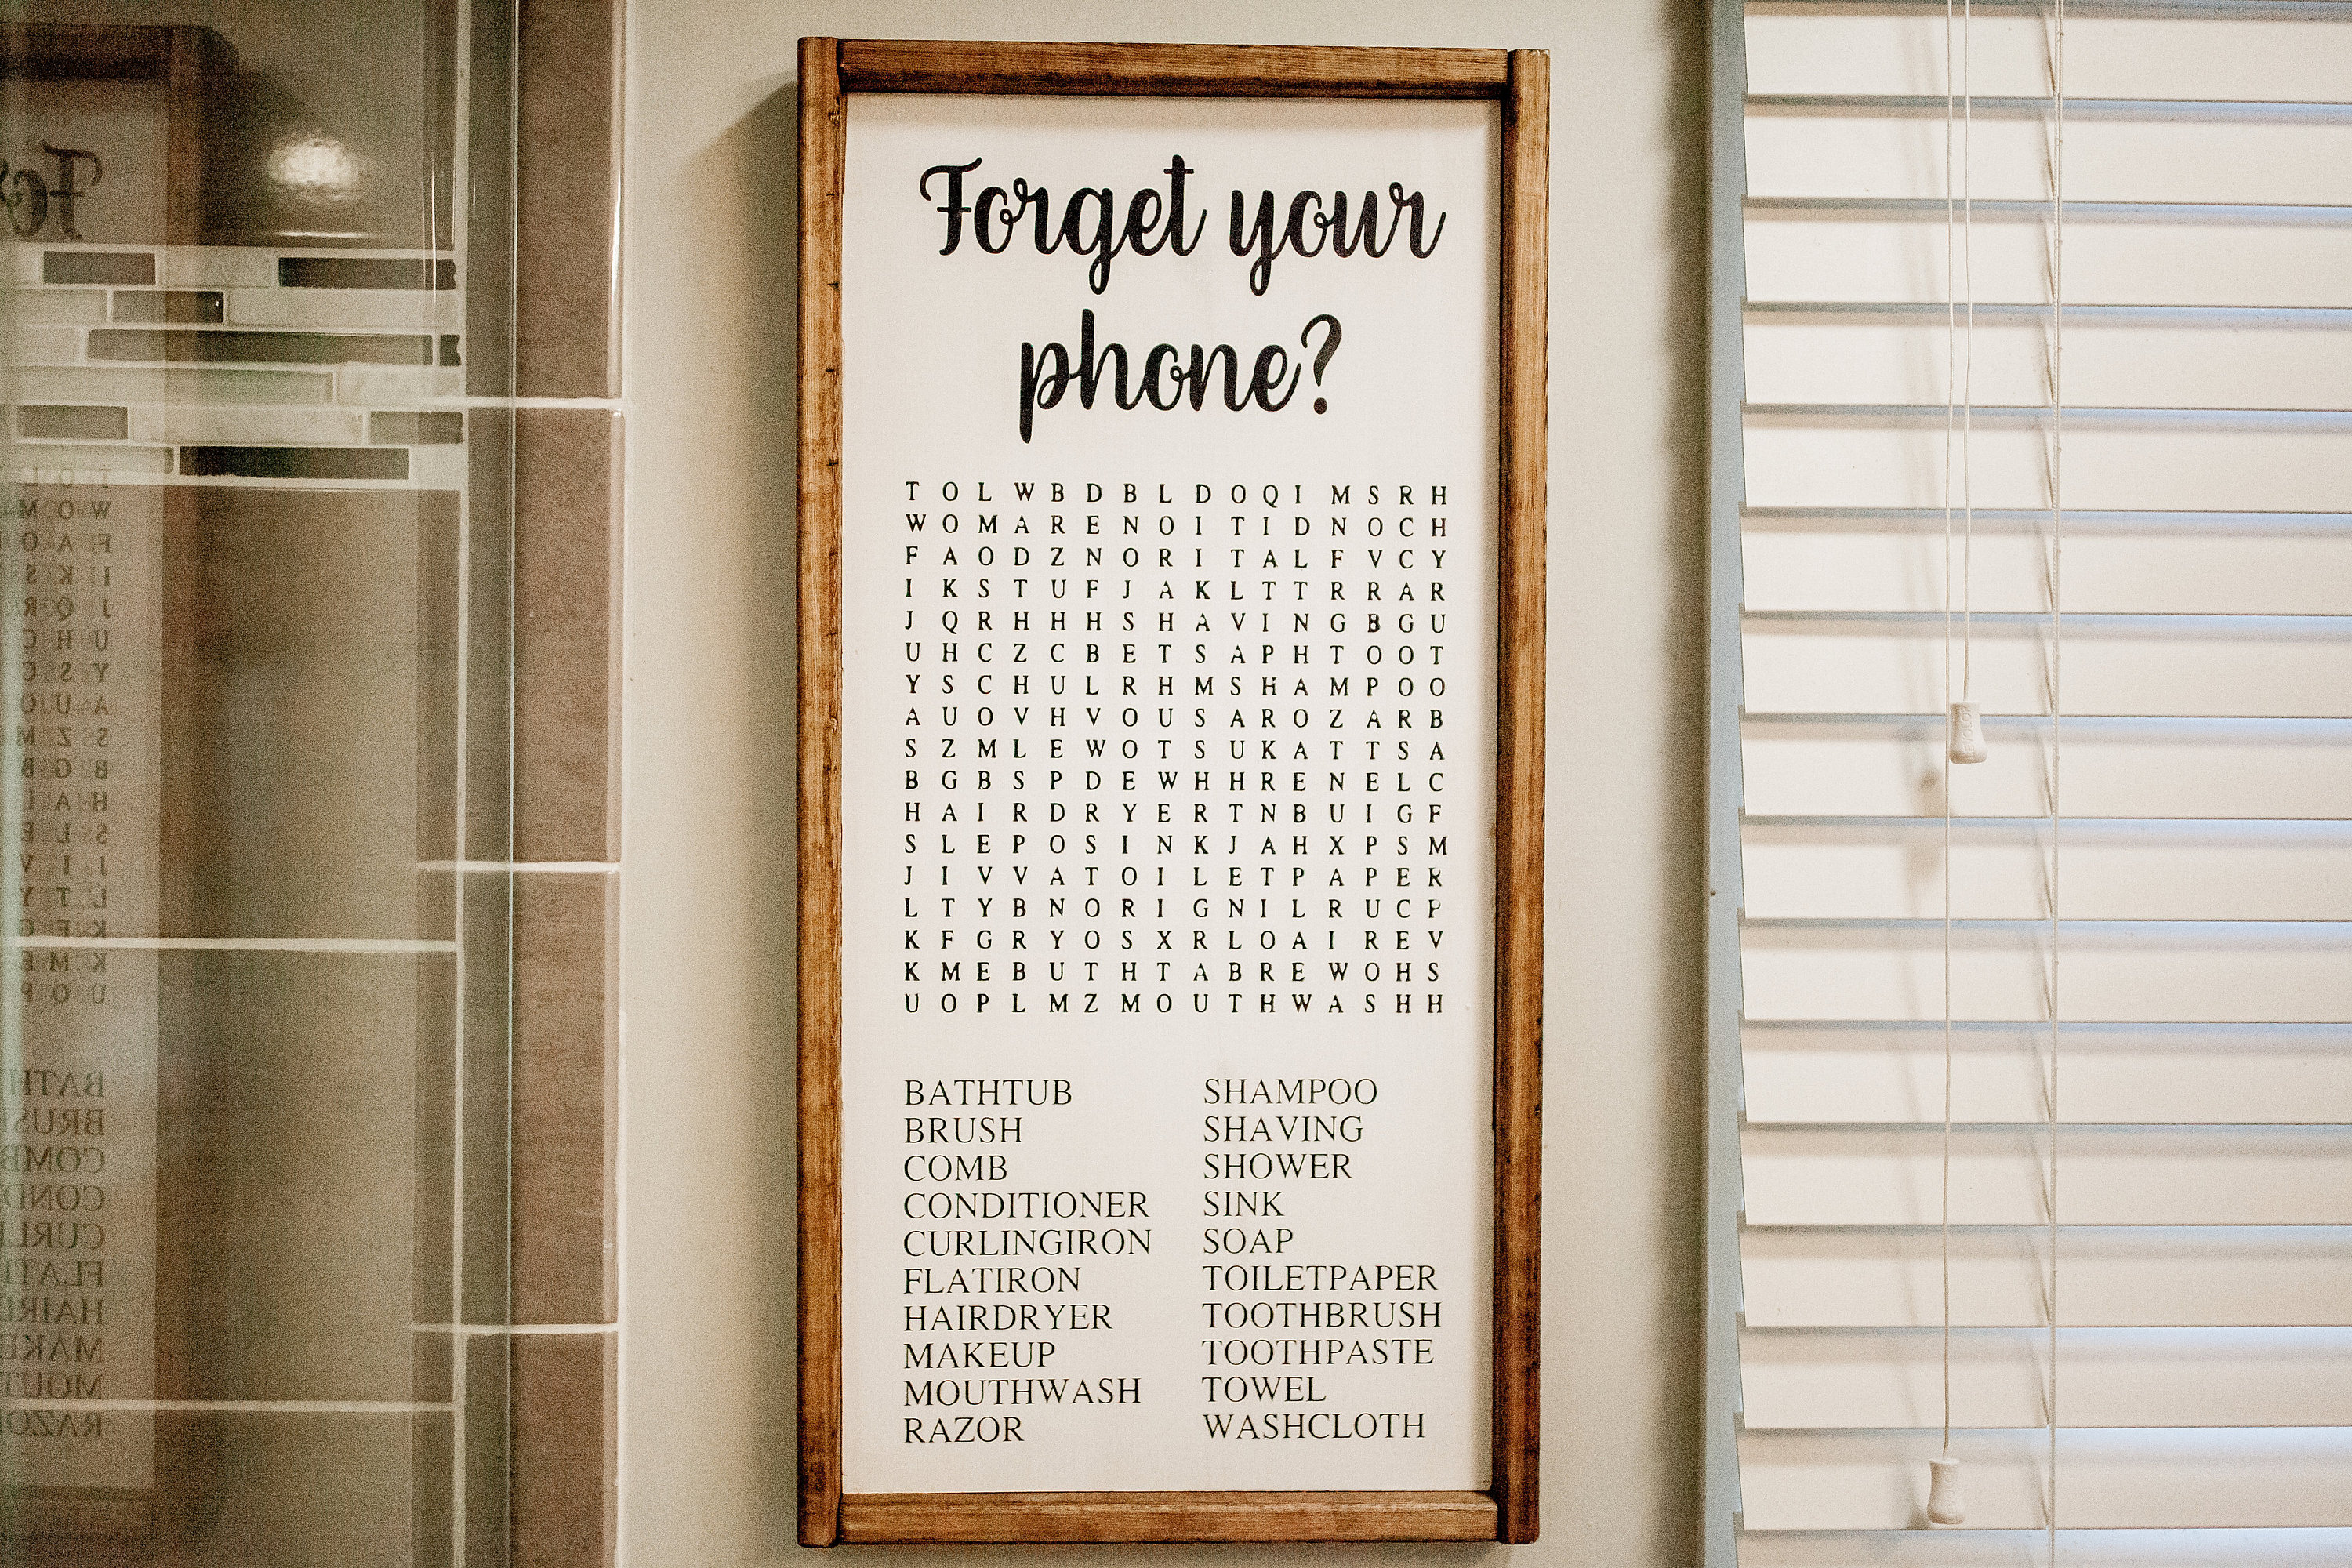 Forget your
phone?
T O L W B D B L D O Q I M S R H
W O M A R E N O I T I D N O C H
F A O D Z N O R I T A L F V C Y
I K S T U F J A K L T T R R A R
J Q R H H H S H A V I N G B G U
U H C Z C B E T S A P H T O O T
Y S C H U L R H M S H A M P O O
A U O V H V O U S A R O Z A R B
S Z M L E W O T S U K A T T S A
B G B S P D E W H H R E N E L C
H A I R D R Y E R T N B U I G F
S L E P O S I N K J A H X P S M
J I V V A T O I L E T P A P E R
L T Y B N O R I G N I L R U C P
K F G R Y O S X R L O A I R E V
K M E B U T H T A B R E W O H S
U O P L M Z M O U T H W A S H H
BATHTUB
BRUSH
COMB
CONDITIONER
CURLINGIRON
FLATIRON
HAIRDRYER
MAKEUP
MOUTHWASH
RAZOR
SHAMPOO
SHAVING
SHOWER
SINK
SOAP
TOILETPAPER
TOOTHBRUSH
TOOTHPASTE
TOWEL
WASHCLOTH